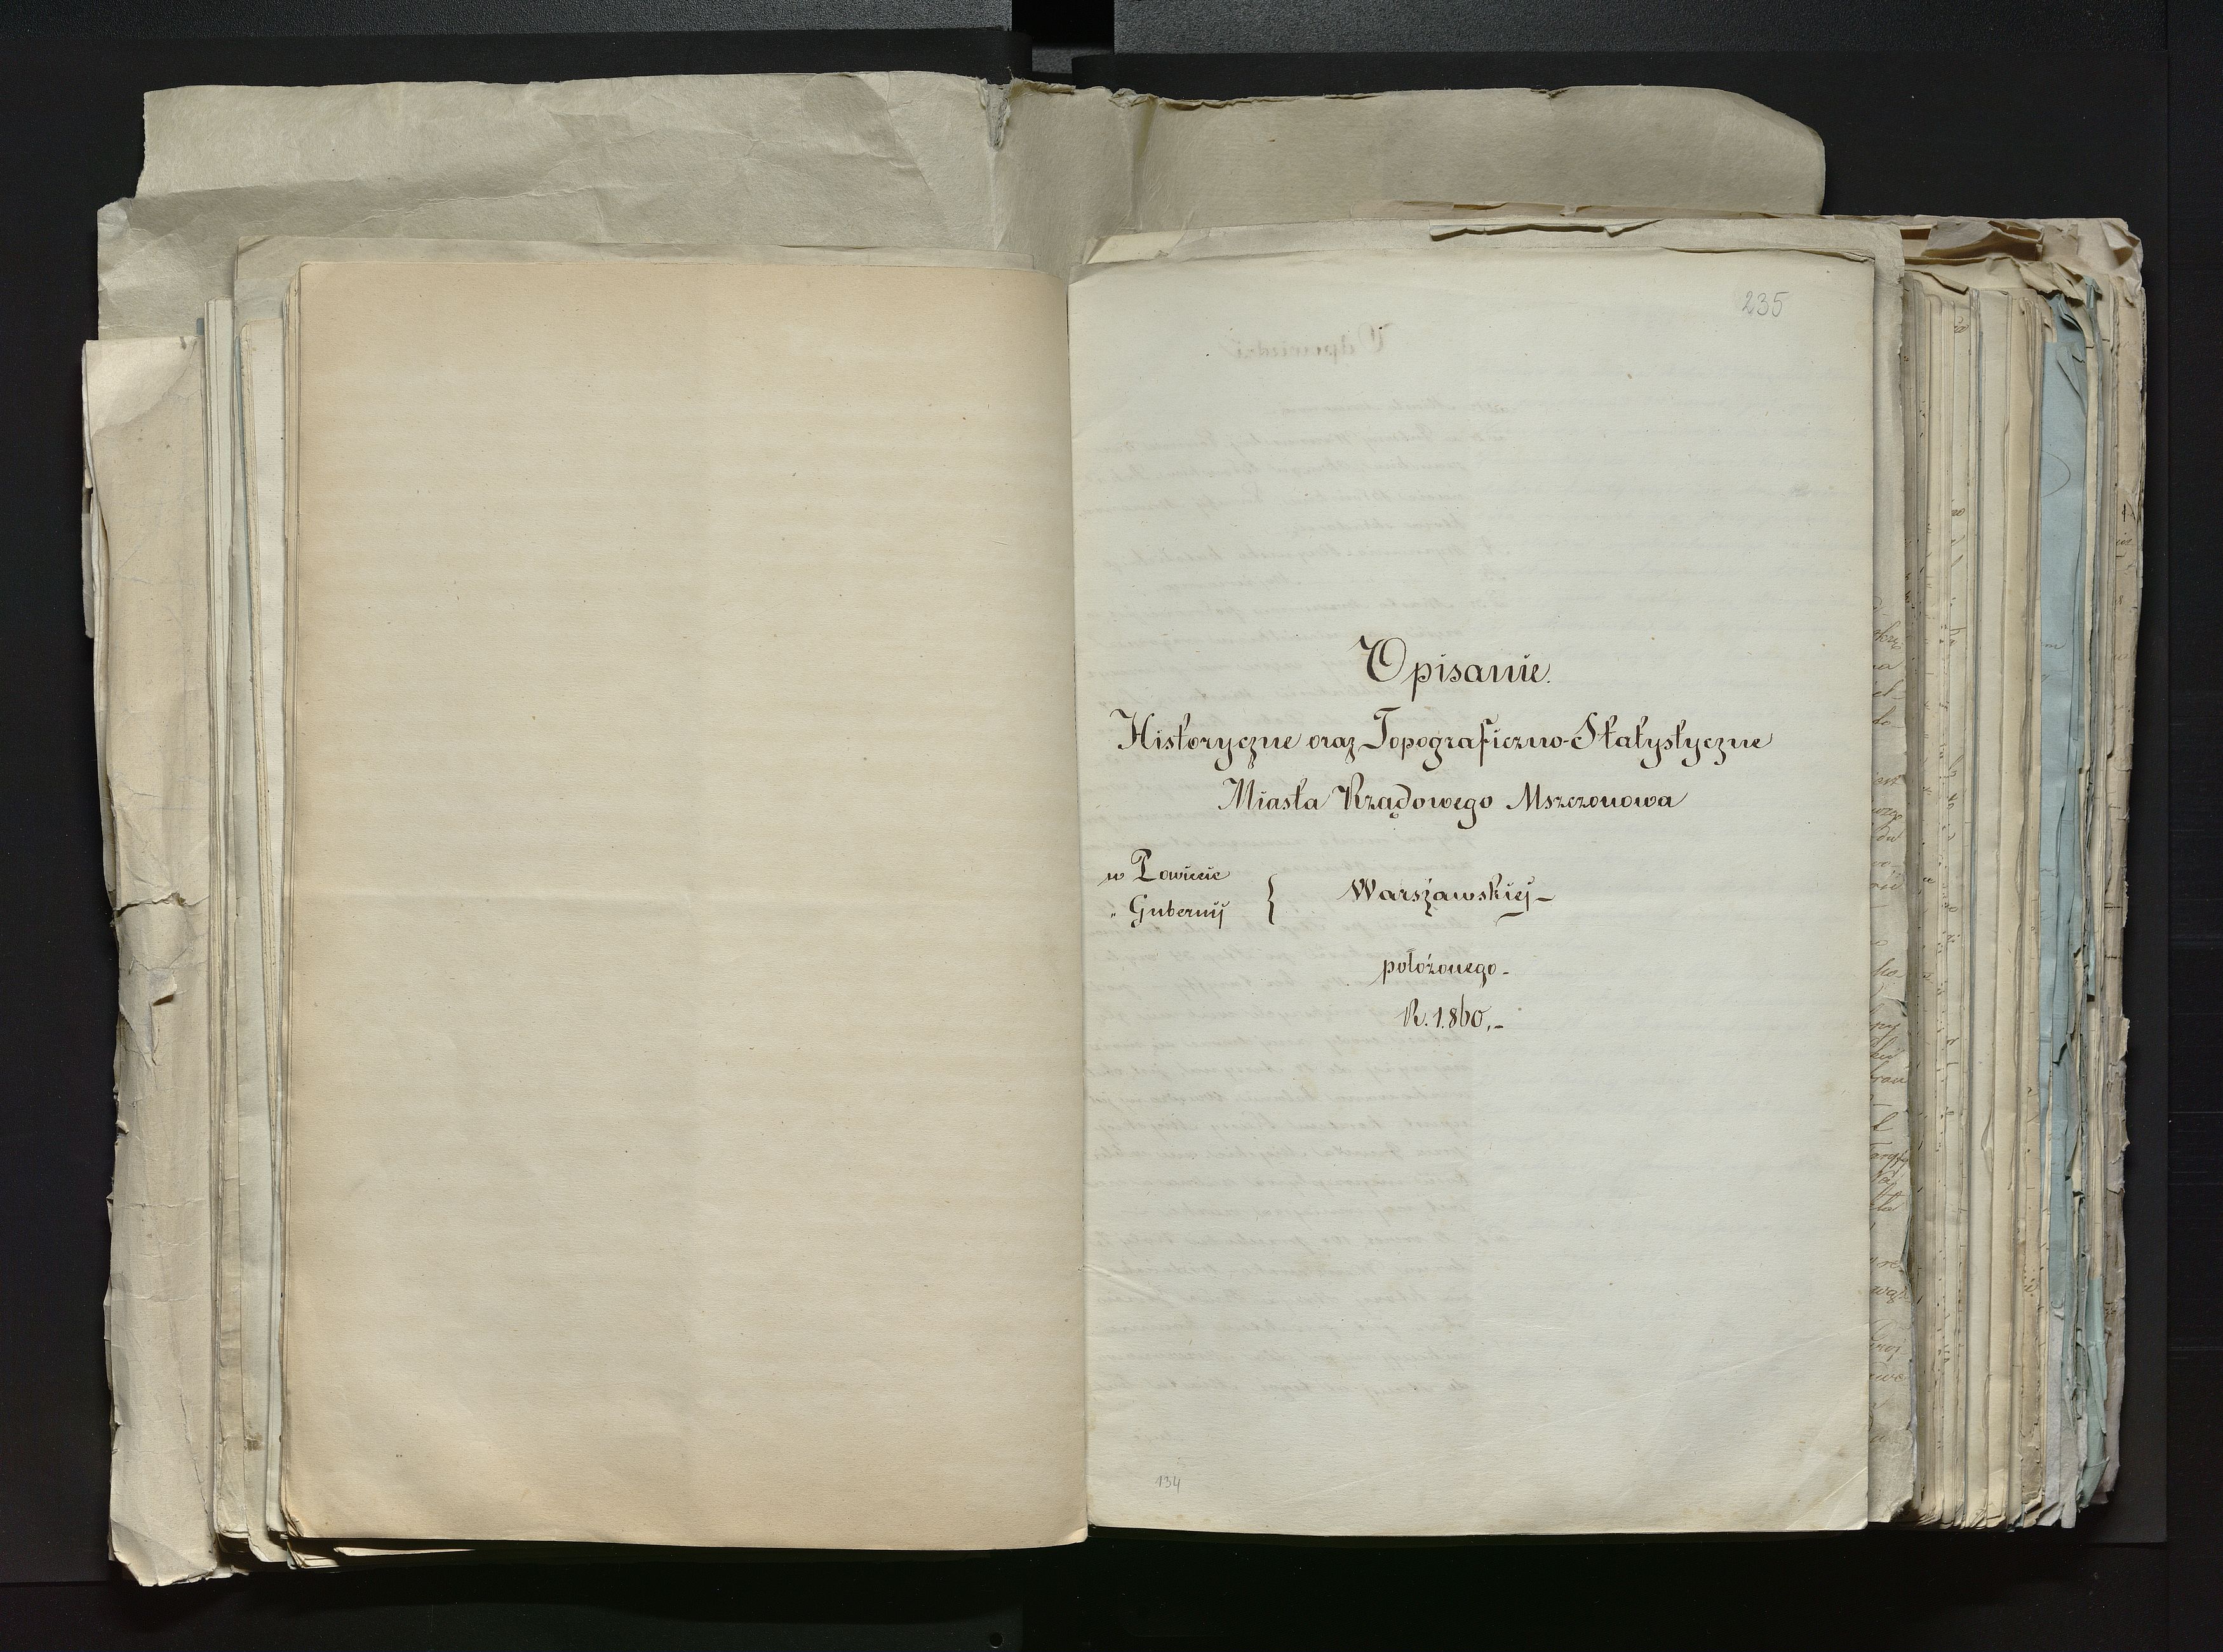 235
Opisanie.
Historyczne oraz Topograficzno-Statystyczne
Miasta Rządowego Mszczonowa
w Powiecie
" Gubernij } Warszawskiej -
położonego -
R. 1860, -
134